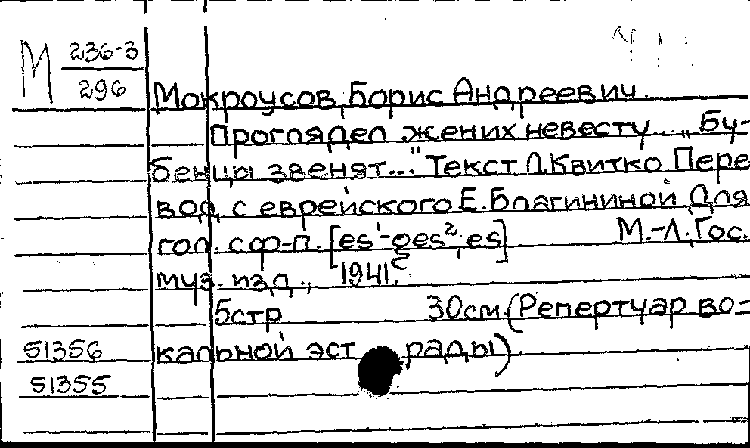 М 236-3
296
Мокроусов, Борис Андреевич.
Проглядел жених невесту... „Бу-
бенцы звенят..." Текст Л. Квитко Пере
вод с еврейского Е. Благининой Для
гол. с ф-п. [es¹-ges², es] М.-Л. Гос.
муз. изд., 1941.
5стр 30см. (Репертуар во-
51356 кальной эст рады)
51355